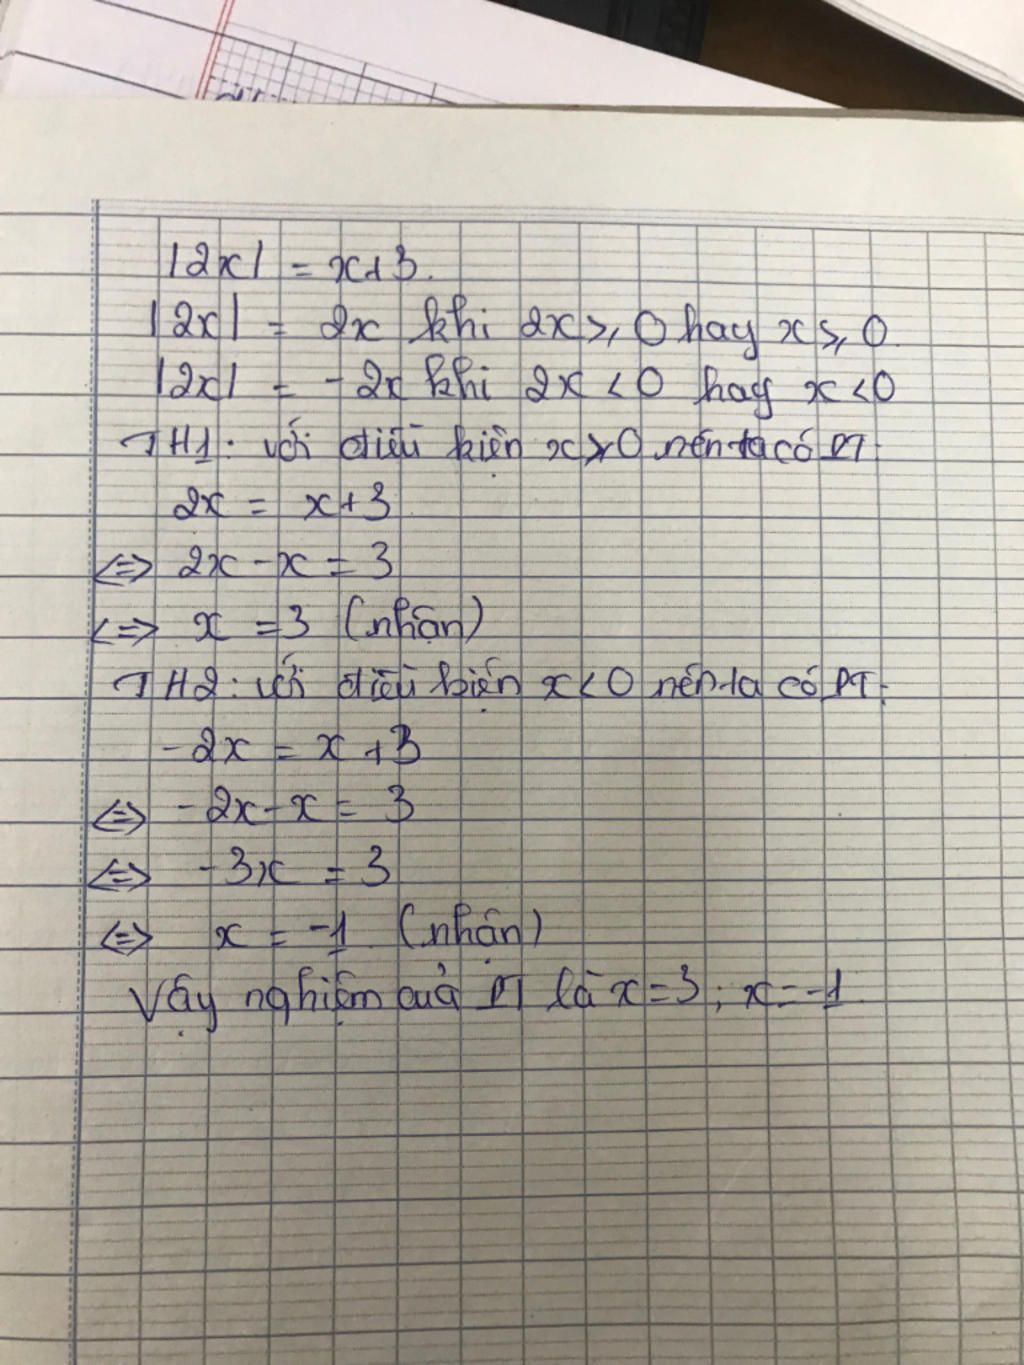 |2x| = x+3.
|2x| = 2x khi 2x ≥ 0 hay x ≥ 0
|2x| = -2x khi 2x < 0 hay x < 0
TH1: với điều kiện x ≥ 0 nên ta có PT:
2x = x+3
<=> 2x - x = 3
<=> x = 3 (nhận)
TH2: với điều kiện x < 0 nên ta có PT:
-2x = x + 3
<=> -2x - x = 3
<=> -3x = 3
<=> x = -1 (nhận)
Vậy nghiệm của PT là x=3; x=-1